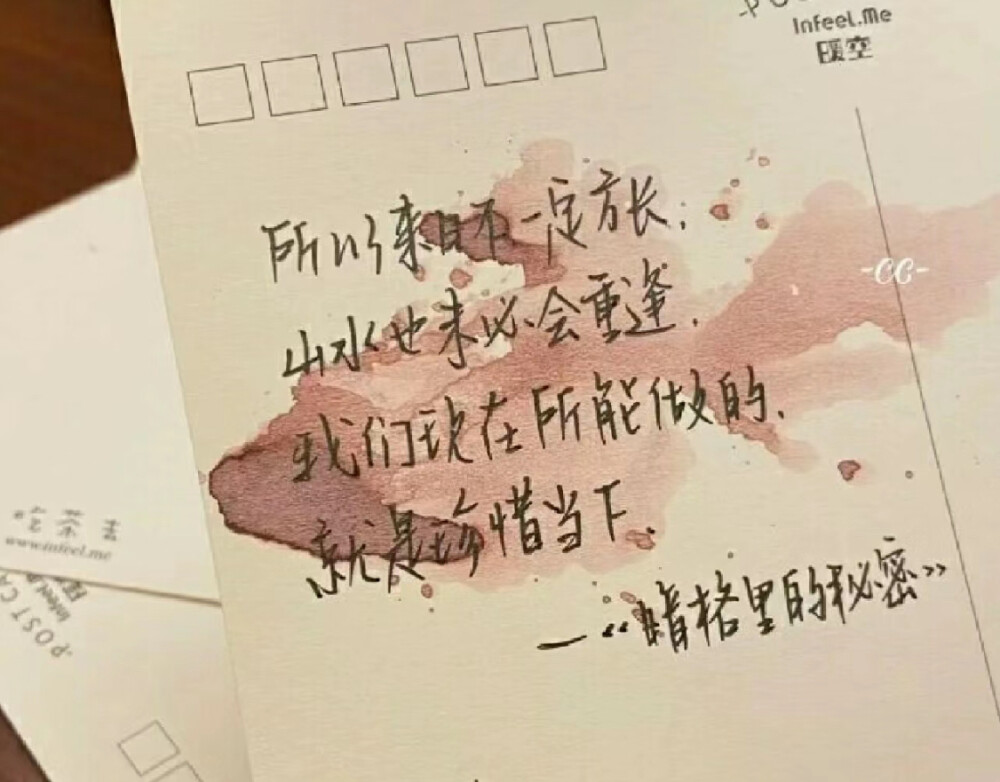 Infeel.Me
暖空
所以来日不一定方长,
山水也未必会重逢.
-cc-
我们现在所能做的,
就是珍惜当下.
—“暗格里的秘密”
吃茶去
www.infeel.me
POST CA